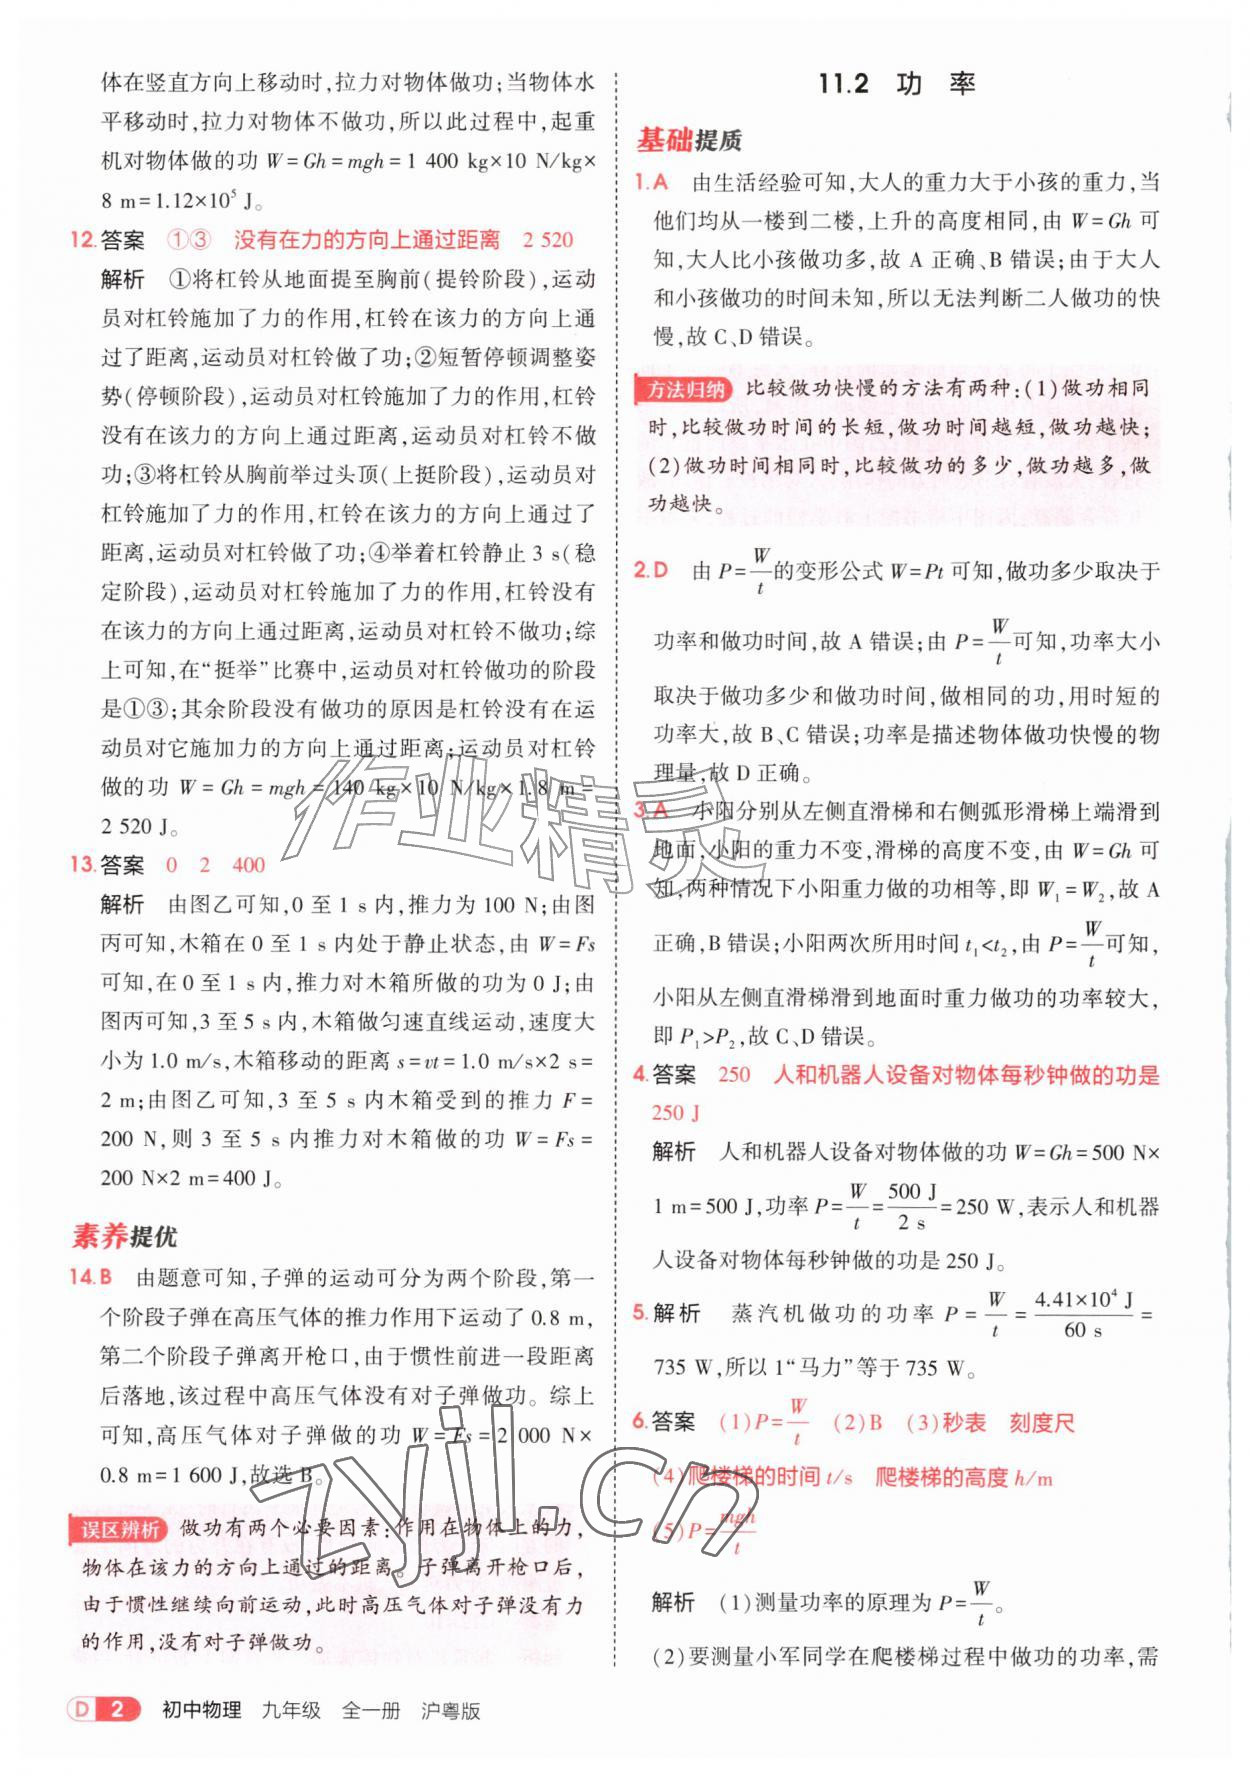 体在竖直方向上移动时,拉力对物体做功;当物体水
平移动时,拉力对物体不做功,所以此过程中,起重
机对物体做的功 W = Gh = mgh = 1 400 kg×10 N/kg×
8 m = 1.12×10⁵ J。
12. 答案 ①③ 没有在力的方向上通过距离 2 520
解析 ①将杠铃从地面提至胸前(提铃阶段),运动
员对杠铃施加了力的作用,杠铃在该力的方向上通
过了距离,运动员对杠铃做了功;②短暂停顿调整姿
势(停顿阶段),运动员对杠铃施加了力的作用,杠铃
没有在该力的方向上通过距离,运动员对杠铃不做
功;③将杠铃从胸前举过头顶(上挺阶段),运动员对
杠铃施加了力的作用,杠铃在该力的方向上通过了
距离,运动员对杠铃做了功;④举着杠铃静止 3 s(稳
定阶段),运动员对杠铃施加了力的作用,杠铃没有
在该力的方向上通过距离,运动员对杠铃不做功;综
上可知,在“挺举”比赛中,运动员对杠铃做功的阶段
是①③;其余阶段没有做功的原因是杠铃没有在运
动员对它施加力的方向上通过距离;运动员对杠铃
做的功 W = Gh = mgh = 140 kg×10 N/kg×1.8 m =
2 520 J。
13. 答案 0 2 400
解析 由图乙可知,0 至 1 s 内,推力为 100 N;由图
丙可知,木箱在 0 至 1 s 内处于静止状态,由 W = Fs
可知,在 0 至 1 s 内,推力对木箱所做的功为 0 J;由
图丙可知,3 至 5 s 内,木箱做匀速直线运动,速度大
小为 1.0 m/s,木箱移动的距离 s = vt = 1.0 m/s×2 s =
2 m;由图乙可知,3 至 5 s 内木箱受到的推力 F =
200 N,则 3 至 5 s 内推力对木箱做的功 W = Fs =
200 N×2 m = 400 J。
素养提优
14. B 由题意可知,子弹的运动可分为两个阶段,第一
个阶段子弹在高压气体的推力作用下运动了 0.8 m,
第二个阶段子弹离开枪口,由于惯性前进一段距离
后落地,该过程中高压气体没有对子弹做功。综上
可知,高压气体对子弹做的功 W = Fs = 2 000 N×
0.8 m = 1 600 J,故选 B。
误区辨析 做功有两个必要因素:作用在物体上的力,
物体在该力的方向上通过的距离。子弹离开枪口后,
由于惯性继续向前运动,此时高压气体对子弹没有力
的作用,没有对子弹做功。
D 2 初中物理 九年级 全一册 沪粤版
11.2 功 率
基础提质
1. A 由生活经验可知,大人的重力大于小孩的重力,当
他们均从一楼到二楼,上升的高度相同,由 W = Gh 可
知,大人比小孩做功多,故 A 正确、B 错误;由于大人
和小孩做功的时间未知,所以无法判断二人做功的快
慢,故 C、D 错误。
方法归纳 比较做功快慢的方法有两种:(1)做功相同
时,比较做功时间的长短,做功时间越短,做功越快;
(2)做功时间相同时,比较做功的多少,做功越多,做
功越快。
2. D 由 P = W/t 的变形公式 W = Pt 可知,做功多少取决于
功率和做功时间,故 A 错误;由 P = W/t 可知,功率大小
取决于做功多少和做功时间,做相同的功,用时短的
功率大,故 B、C 错误;功率是描述物体做功快慢的物
理量,故 D 正确。
3. A 小阳分别从左侧直滑梯和右侧弧形滑梯上端滑到
地面,小阳的重力不变,滑梯的高度不变,由 W = Gh 可
知,两种情况下小阳重力做的功相等,即 W₁ = W₂,故 A
正确,B 错误;小阳两次所用时间 t₁<t₂,由 P = W/t 可知,
小阳从左侧直滑梯滑到地面时重力做功的功率较大,
即 P₁>P₂,故 C、D 错误。
4. 答案 250 人和机器人设备对物体每秒钟做的功是
250 J
解析 人和机器人设备对物体做的功 W = Gh = 500 N×
1 m = 500 J,功率 P = W/t = 500 J/2 s = 250 W,表示人和机器
人设备对物体每秒钟做的功是 250 J。
5. 解析 蒸汽机做功的功率 P = W/t = 4.41×10⁴ J/60 s =
735 W,所以 1“马力”等于 735 W。
6. 答案 (1)P = W/t (2)B (3)秒表 刻度尺
(4)爬楼梯的时间 t/s 爬楼梯的高度 h/m
(5)P = mgh/t
解析 (1)测量功率的原理为 P = W/t。
(2)要测量小军同学在爬楼梯过程中做功的功率,需
作业精灵
zyjl.cn